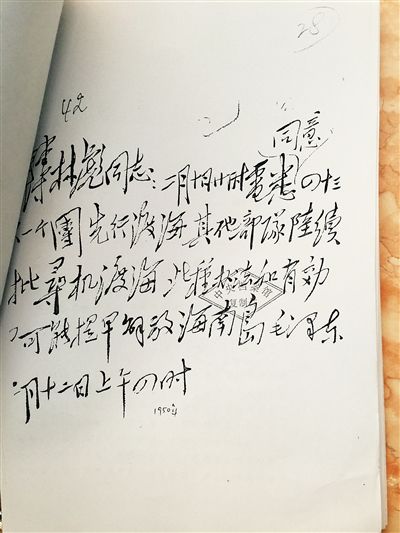 28
42
同意
林彪同志:二月十日廿时電悉 四十三
一个團先行渡海其他部隊陸續
批尋机渡海此種办法如有効
可能提早解放海南島毛泽东
月十二日上午四时
1950年
复制